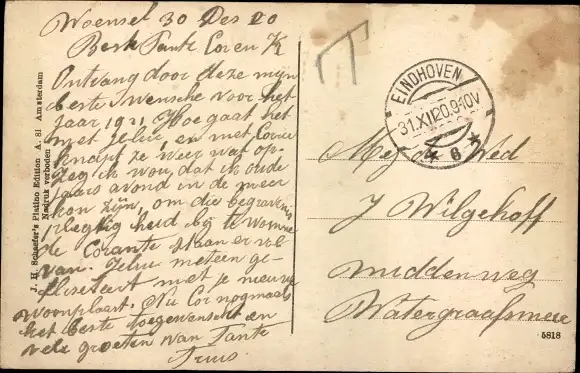 Woensel 30 Des 20
Beste Tante Cor en K
Ontvang door deze mijn
beste wensche voor het
jaar 1921 Hoe gaat het
met jelui, en met Corrie
knapt ze weer wat op.
Zeg ik wou, dat ik oude
jaars avond in de meer
kon zijn, om die begravenis
plegtigheid bij te wonne
de Corante staan er vol
van. Jelui meteen ge-
fliseteert met je nieuwe
woonplaats. Nu Cor nogmaals
het beste toegewenscht en
vele groeten van Tante
Truus
J. H. Schaefer's Platino Edition A. 81 Amsterdam
Nadruk verboden
T
EINDHOVEN
31.XII.20.9-10V
* 6 *
Mej Wed
J Wilgehoff
Middenweg
Watergraafsmeer
5818